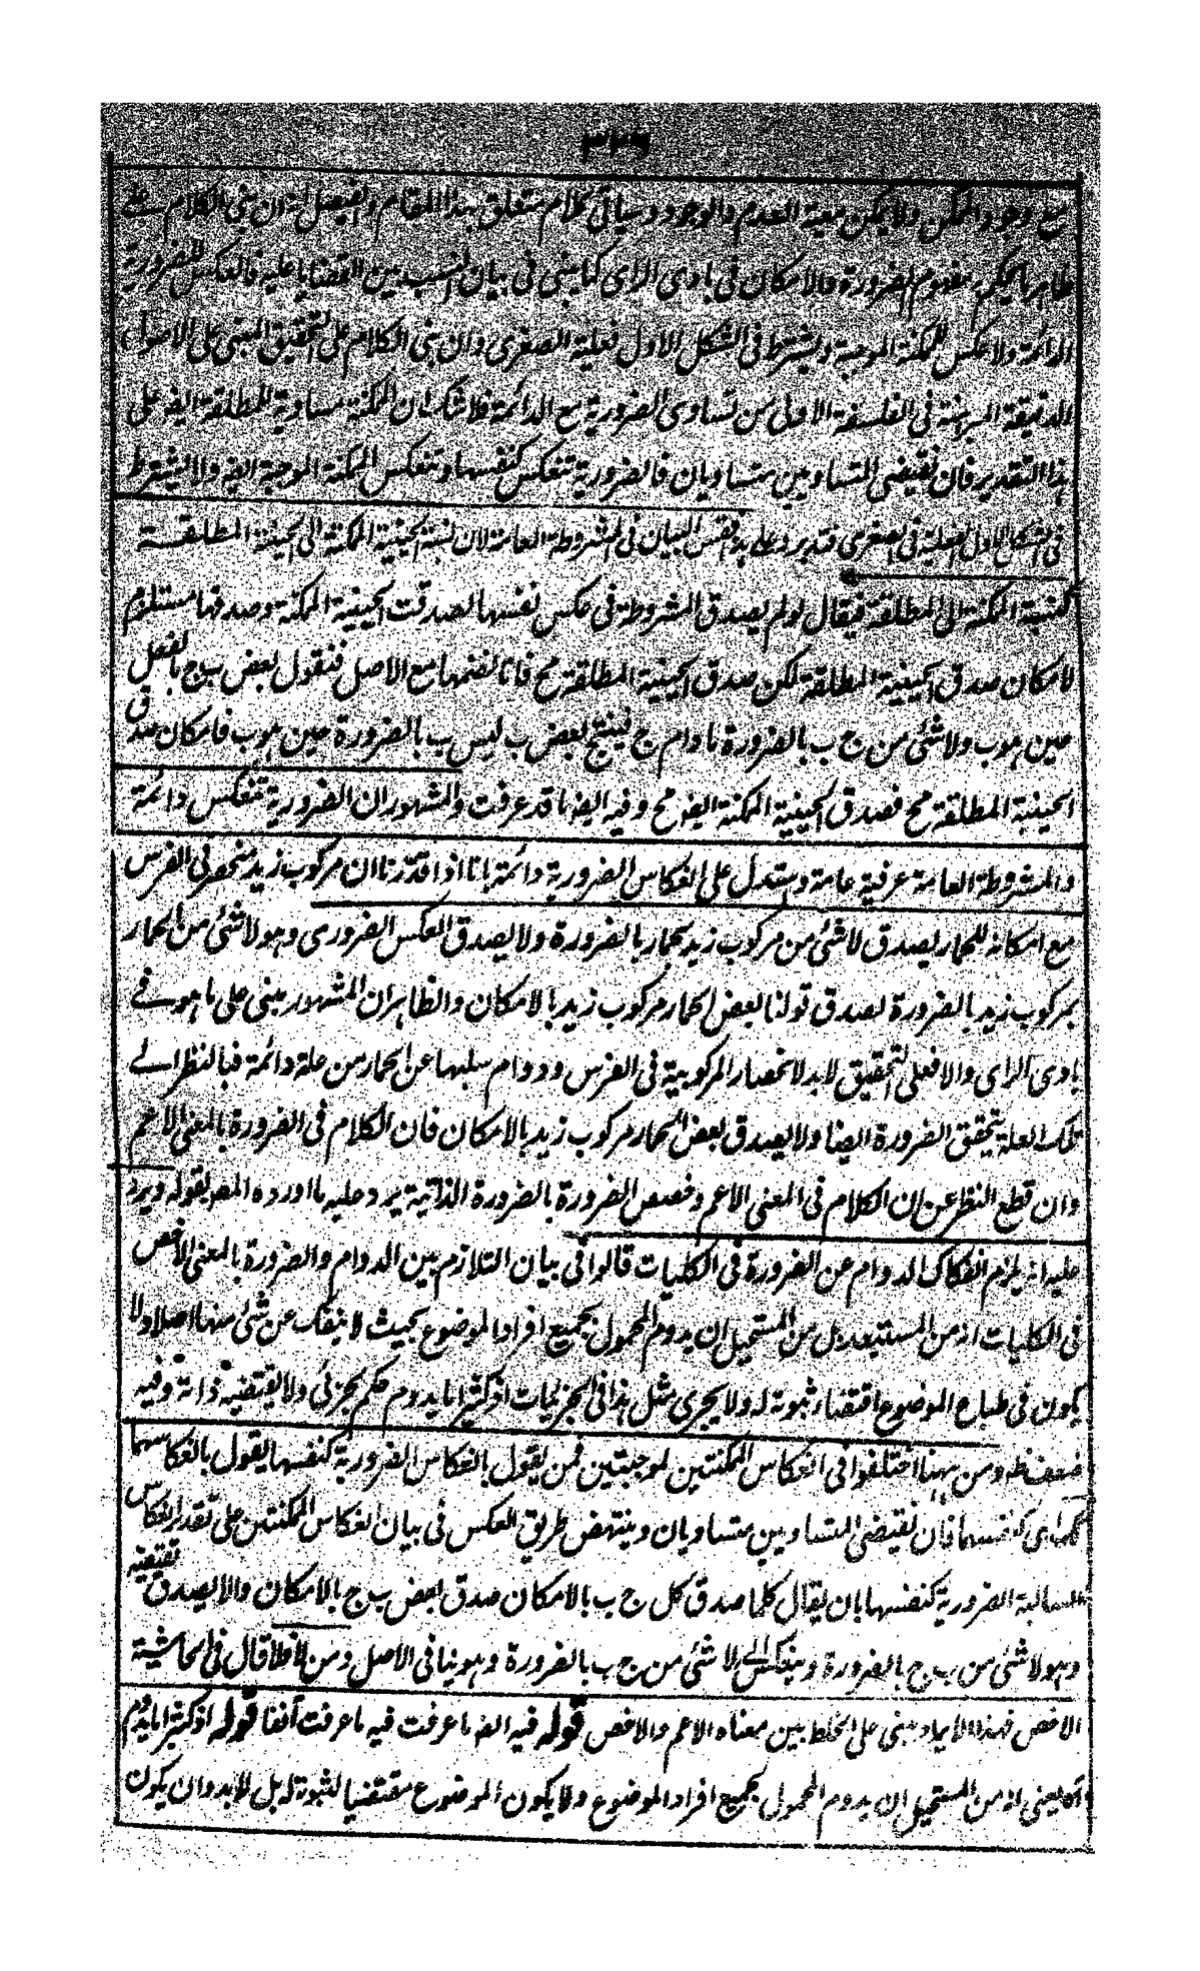 ٣٢٦
مع وجود الممكن ولا يمكن معية العدم والوجود وسياتى كلام متعلق بهذا المقام والفيصل انه ان بنى الكلام على
ظاهر ما يحكم به مفهوم الضرورة والامكان فى بادى الراى كما بنى فى بيان النسب بين القضايا عليه فالعكس للضرورية
الدائمة ولا عكس للممكنة الموجبة ويشترط فى الشكل الاول فعلية الصغرى وان بنى الكلام على التحقيق المبنى على الاصول
الدقيقة المبرهنة فى الفلسفة الاولى من تساوى الضرورية مع الدائمة فلا شك ان الممكنة مساوية للمطلقة ايضا على
هذا التقدير فان نقيضى المتساويين متساويان فالضرورية تنعكس كنفسها وتنعكس الممكنة الموجبة ايضا ولا يشترط
فى الشكل الاول الفعلية فى الصغرى فتدبر وعلى هذا فقس البيان فى المشروطة العامة لان نسبة الحينية الممكنة الى الحينية المطلقة
كنسبة الممكنة الى المطلقة فيقال لو لم يصدق المشروطة فى عكس نفسها لصدقت الحينية الممكنة وصدقها مستلزم
لامكان صدق الحينية المطلقة لكن صدق الحينية المطلقة مح فانا نضمها مع الاصل فنقول بعض ب ج بالفعل
حين هو ب ولا شئ من ج ب بالضرورة ما دام ج ينتج بعض ب ليس ب بالضرورة حين هو ب فامكان صدق
الحينية المطلقة مح فصدق الحينية الممكنة ايضا مح وفيه ايضا ما قد عرفت والمشهور ان الضرورية تنعكس دائمة
والمشروطة العامة عرفية عامة ويستدل على انعكاس الضرورية دائمة بانا اذا قدرنا ان مركوب زيد منحصر فى الفرس
مع امكانه للحمار يصدق لا شئ من مركوب زيد بحمار بالضرورة ولا يصدق العكس الضرورى وهو لا شئ من الحمار
بمركوب زيد بالضرورة لصدق قولنا بعض الحمار مركوب زيد بالامكان والظاهر ان المشهور مبنى على ما هو فى
بادى الراى والا فعلى التحقيق لا بد لانحصار المركوبية فى الفرس ودوام سلبها عن الحمار من علة دائمة فبالنظر الى
تلك العلة يتحقق الضرورة ايضا ولا يصدق بعض الحمار مركوب زيد بالامكان فان الكلام فى الضرورة بالمعنى الاعم
وان قطع النظر عن ان الكلام فى المعنى الاعم وخصص الضرورة بالضرورة الذاتية يرد عليه ما اورده المص بقوله ويرد
عليه انه يلزم انفكاك الدوام عن الضرورة فى الكليات قالوا فى بيان التلازم بين الدوام والضرورة بالمعنى الاخص
فى الكليات اذ من المستبعد بل من المستحيل ان يدوم المحمول لجميع افراد الموضوع بحيث لا ينفك عن شئ منها اصلا ولا
يكون فى طباع الموضوع اقتضاء ثبوته له ولا يجرى مثل هذا فى الجزئيات اذ كثيرا ما يدوم حكم لجزئى ولا يقتضيه ذاته وفيه
ضعف ظ ومن ههنا اختلفوا فى انعكاس الممكنتين لموجبتين فمن يقول بانعكاس الضرورية كنفسها يقول بانعكاسهما
كنفسهما فان نقيضى المتساويين متساويان وينتهض طريق العكس فى بيان انعكاس الممكنتين على تقدير انعكاس
السالبة الضرورية كنفسها بان يقال كلما صدق كل ج ب بالامكان صدق بعض ب ج بالامكان والا يصدق نقيضه
وهو لا شئ من ب ج بالضرورة وينعكس الى لا شئ من ج ب بالضرورة وهو ينافى الاصل ومن لا فلا قال فى الحاشية
الاخص فهذا الايراد مبنى على الخلط بين معناه الاعم والاخص قوله فيه الخ ما عرفت فيه ما عرفت آنفا قوله اذ كثيرا ما يدوم
يعنى انه من المستحيل ان يدوم المحمول لجميع افراد الموضوع ولا يكون الموضوع مقتضيا لثبوته له بل لا بد وان يكون